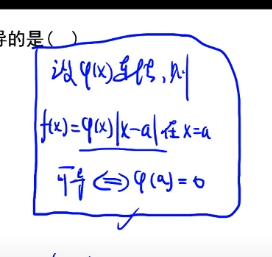 导的是( )
设φ(x)连续,则
f(x)=φ(x)|x-a|在x=a
可导⟺φ(a)=0